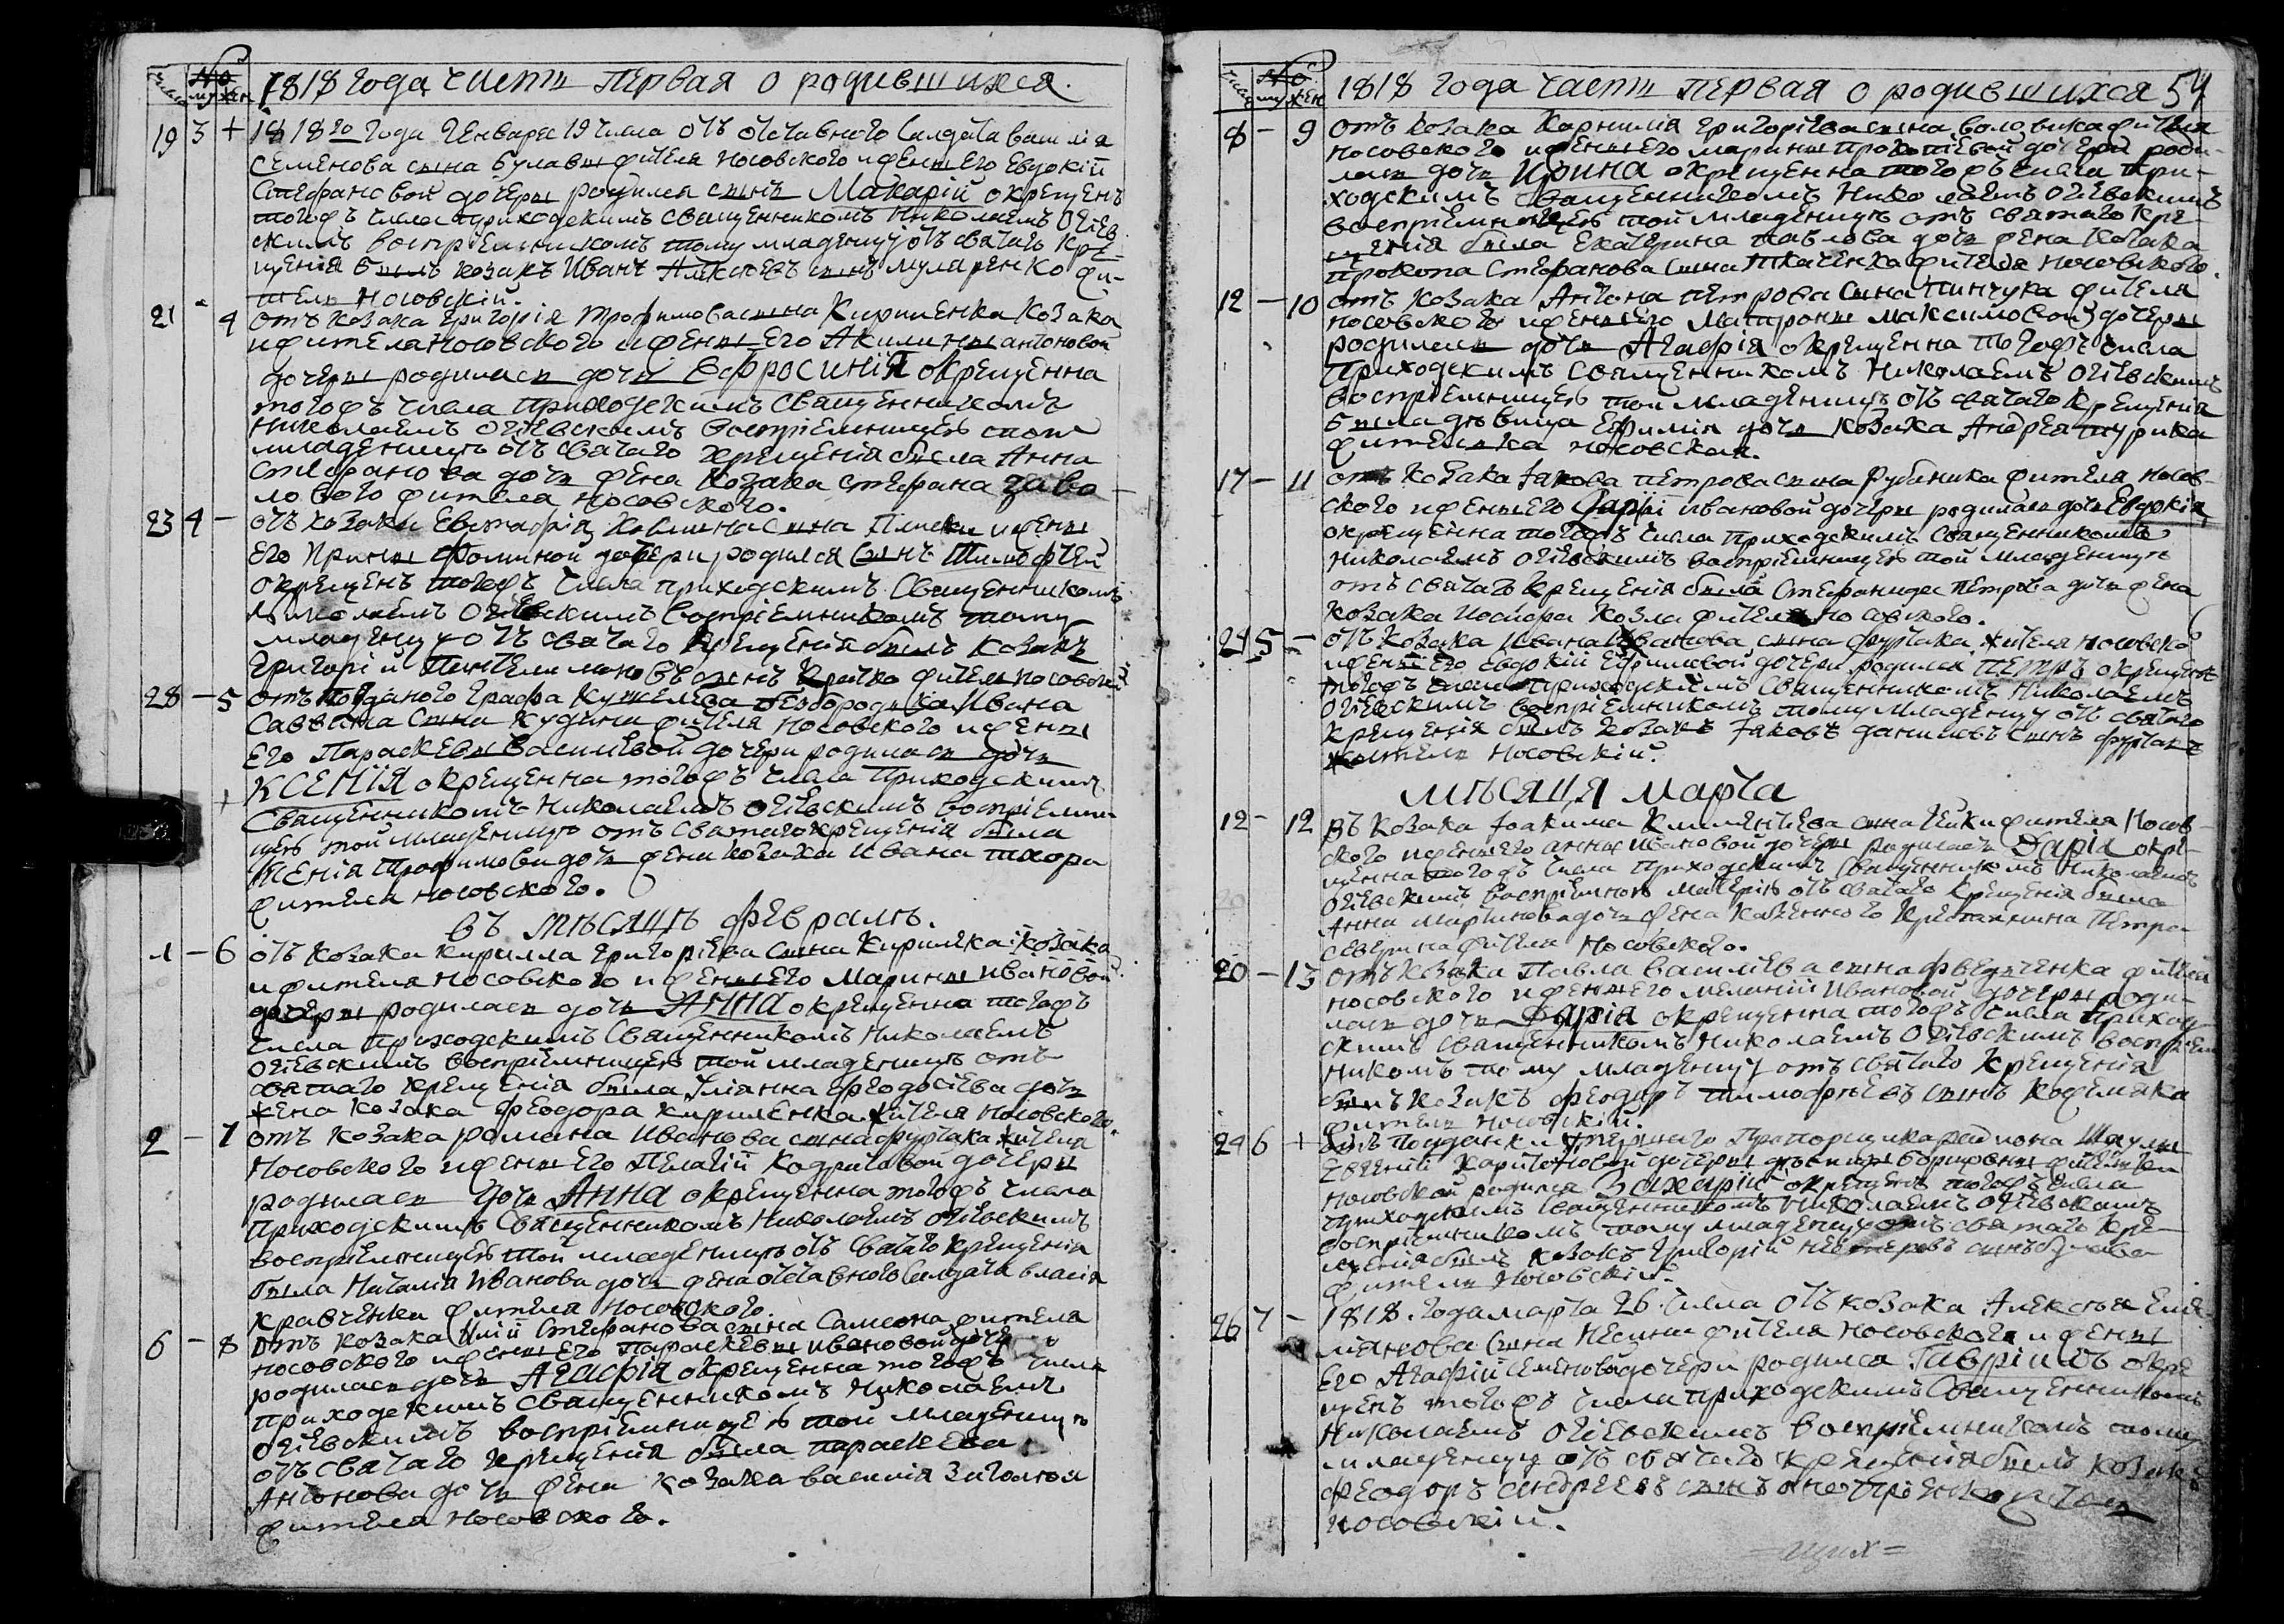 число № муж жен 1818 года часть первая о родившихся.
19 3 + 1818го года Генваря 19 числа отъ отставного салдата василія
Семенова сына булавы жителя носовского и жены его Евдокіи
Стефановой дочеры родился сынъ Макарій окрещенъ
тогожъ числа приходскимъ священникомъ Николаемъ Огіев
скимъ воспріемникомъ тому младенцу отъ святаго кре
щенія былъ козакъ Иванъ Алексѣевъ сынъ муляренко жи-
тель Носовскій.
21 - 4 отъ козака Григорія Трофимова сына Кириленка козака
и жителя Носовского и жены его Акилины антоновой
дочеры родилась дочь Ефросинія окрещенна
тогожъ числа приходскимъ священникомъ
николаемъ огіевскимъ воспріемницею той
младеницѣ отъ святаго крещенія была Анна
Стефанова дочь жена козака стефана
лового жителя носовского.
23 4 - отъ козака Евстафія сына и жены
его Ирины Фоминой дочери родился сынъ Тимофѣй
окрещенъ тогожъ числа приходскимъ Священникомъ
Николаемъ Огіевскимъ воспріемникомъ тому
младенцу отъ святаго крещенія былъ козакъ
Григорій Пантелимоновъ сынъ жителъ носовскій
28 - 5 отъ подданого Графа Кушелева безбородька Ивана
Саввина сына Кудина жителя носовского и жены
его Параскевы василіевой дочери родилась дочь
КСЕНІЯ окрещенна тогожъ числа приходскимъ
Священникомъ Николаемъ огіевскимъ воспріемни
цею той младеницѣ отъ святаго крещенія была
Ксенія Трофимова дочь жена козака Ивана тхора
жителя носовского.
въ мѣсяцѣ февралѣ.
1 - 6 отъ козака Кирилла Григоріева сына Кириляка козака
и жителя носовского и жены его Марины ивановой
дочеры родилась дочь АННА окрещенна тогожъ
числа приходскимъ Священникомъ Николаемъ
огіевскимъ воспріемницею той младеницѣ отъ
святаго крещенія была Уліянна феодосіева дочь
жена козака Феодора кириленка жителя Носовского.
2 - 7 отъ козака романа Иванова сына фурсака жителя
Носовского и жены его Пелагіи Кодратовой дочеры
родилась дочь Анна окрещенна тогожъ числа
приходскимъ Священникомъ Николаемъ огіевскимъ
воспріемницею той младеницѣ отъ святаго крещенія
была Наталія Иванова дочь жена отставного салдата власія
кравченка жителя носовского.
6 - 8 отъ козака Иліи Стефанова сына Самсона жителя
носовского и жены его Параскевы ивановой дочери
родилась дочь Агафія окрещенна тогожъ числа
приходскимъ священникомъ николаемъ
огіевскимъ воспріемницею той младеницѣ
отъ святаго крещенія была параскева
Антонова дочь жена козака василія
жителя носовского.
число № муж жен 1818 года часть первая о родившихся 54
8 - 9 отъ козака Корнилія Григоріева сына воловика жителя
носовского и жены его марины прокопіевой дочери роди-
лась дочь Ирина окрещенна тогожъ числа при-
ходскимъ священникомъ Николаемъ огіевскимъ
воспріемницею той младеницѣ отъ святаго кре-
щенія была Екатерина павлова дочь жена козака
прокопа Стефанова сына ткаченка жителя носовского.
12 - 10 отъ козака Антона петрова сына пинчука жителя
носовского и жены его матроны максимовой дочеры
родилась дочь Агафія окрещенна тогожъ числа
приходскимъ священникомъ Николаемъ огіевскимъ
воспріемницею той младеницѣ отъ святаго крещенія
была дѣвица Ефимія дочь козака Андрея турика
жителька носовская.
17 - 11 отъ козака Iакова петрова сына жителя носов-
ского и жены его Даріи ивановой дочеры родилась дочь Евдокія
окрещенна тогожъ числа приходскимъ священникомъ
николаемъ огіевскимъ воспріемницею той младеницѣ
отъ святаго крещенія была петрова дочь жена
козака Иосифа Козла жителя носовского.
21 5 - отъ козака Ивана Иванова сына фурсака жителя носовско
и жены его евдокіи Ефимовой дочери родился ПЕТРЪ окрещенъ
тогожъ числа приходскимъ священникомъ Николаемъ
огіевскимъ воспріемникомъ тому младенцу отъ святаго
крещенія былъ козакъ Iаковъ даниловъ сынъ фурсакъ
житель носовскій.
МѢСЯЦЯ марта
12 - 12 отъ козака Iоакима Климентіева сына жителя Носов-
ского и жены его анны ивановой дочеры родилась Дарія окре-
щенна тогожъ числа приходскимъ Священникомъ Николаемъ
огіевскимъ воспріемною матерію отъ святаго крещенія была
Анна Мартинова дочь жена казенного крестянина Петра
северина жителя Носовского.
20 - 13 отъ козака Павла василіева сына жителя
носовского и жены его меланіи Ивановой дочеры роди-
лась дочь Дарія окрещенна тогожъ числа приход
скимъ священникомъ Николаемъ огіевскимъ воспріем
никомъ тому младенцу отъ святаго крещенія
былъ козакъ феодоръ тимофѣевъ сынъ кожемяка
житель носовскій.
24 6 + отъ Подданки Прапорщика
Евгеніи Харитоновой дочеры дѣвицы жительки
носовской родился Захарій окрещенъ тогожъ числа
приходскимъ священникомъ Николаемъ огіевскимъ
воспріемникомъ тому младенцу отъ святаго кре-
щенія былъ козакъ Григорій Несторовъ сынъ булава
житель Носовскій.
26 7 - 1818. года марта 26. числа отъ козака Алексѣя Еме
ліянова сына Несина жителя Носовского и жены
его Агафіи семеновой дочери родился Гавріилъ окре
щенъ тогожъ числа приходскимъ священникомъ
Николаемъ огіевскимъ воспріемникомъ тому
младенцу отъ святаго крещенія былъ козакъ
феодоръ андреевъ сынъ оноприенко житель
носовскій.